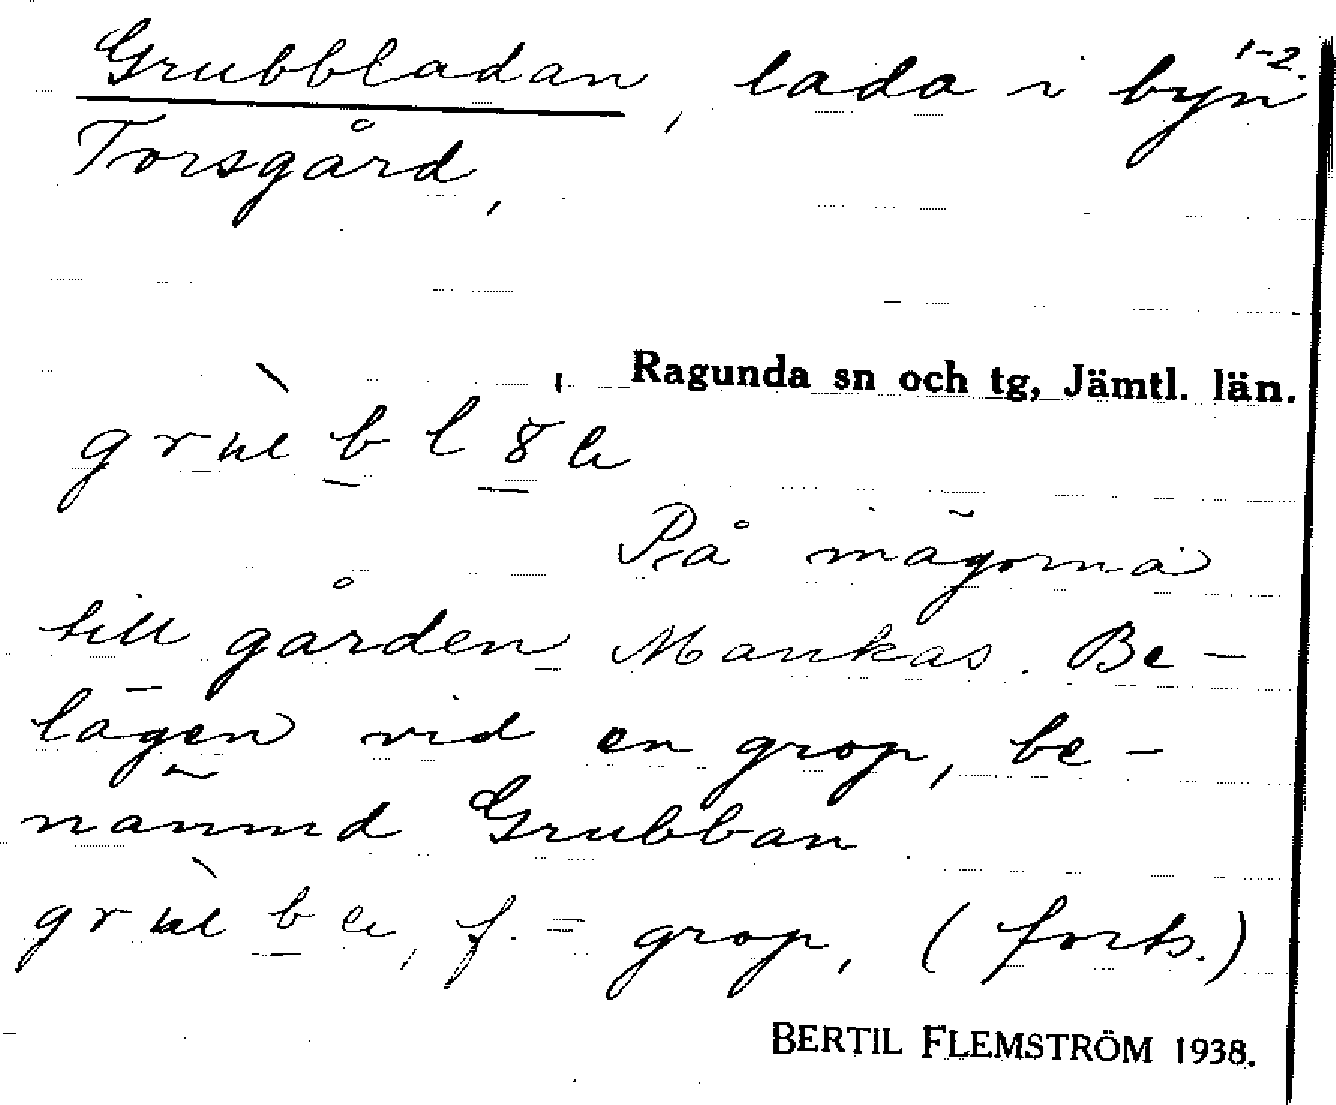 Grubbladan, lada i byn 1-2.
Torsgård,
Ragunda sn och tg, Jämtl. län.
På ägorna
till gården Mankas. Be-
lägen vid en grop, be-
nämnd Grubban
f. = grop, (forts.)
BERTIL FLEMSTRÖM 1938.